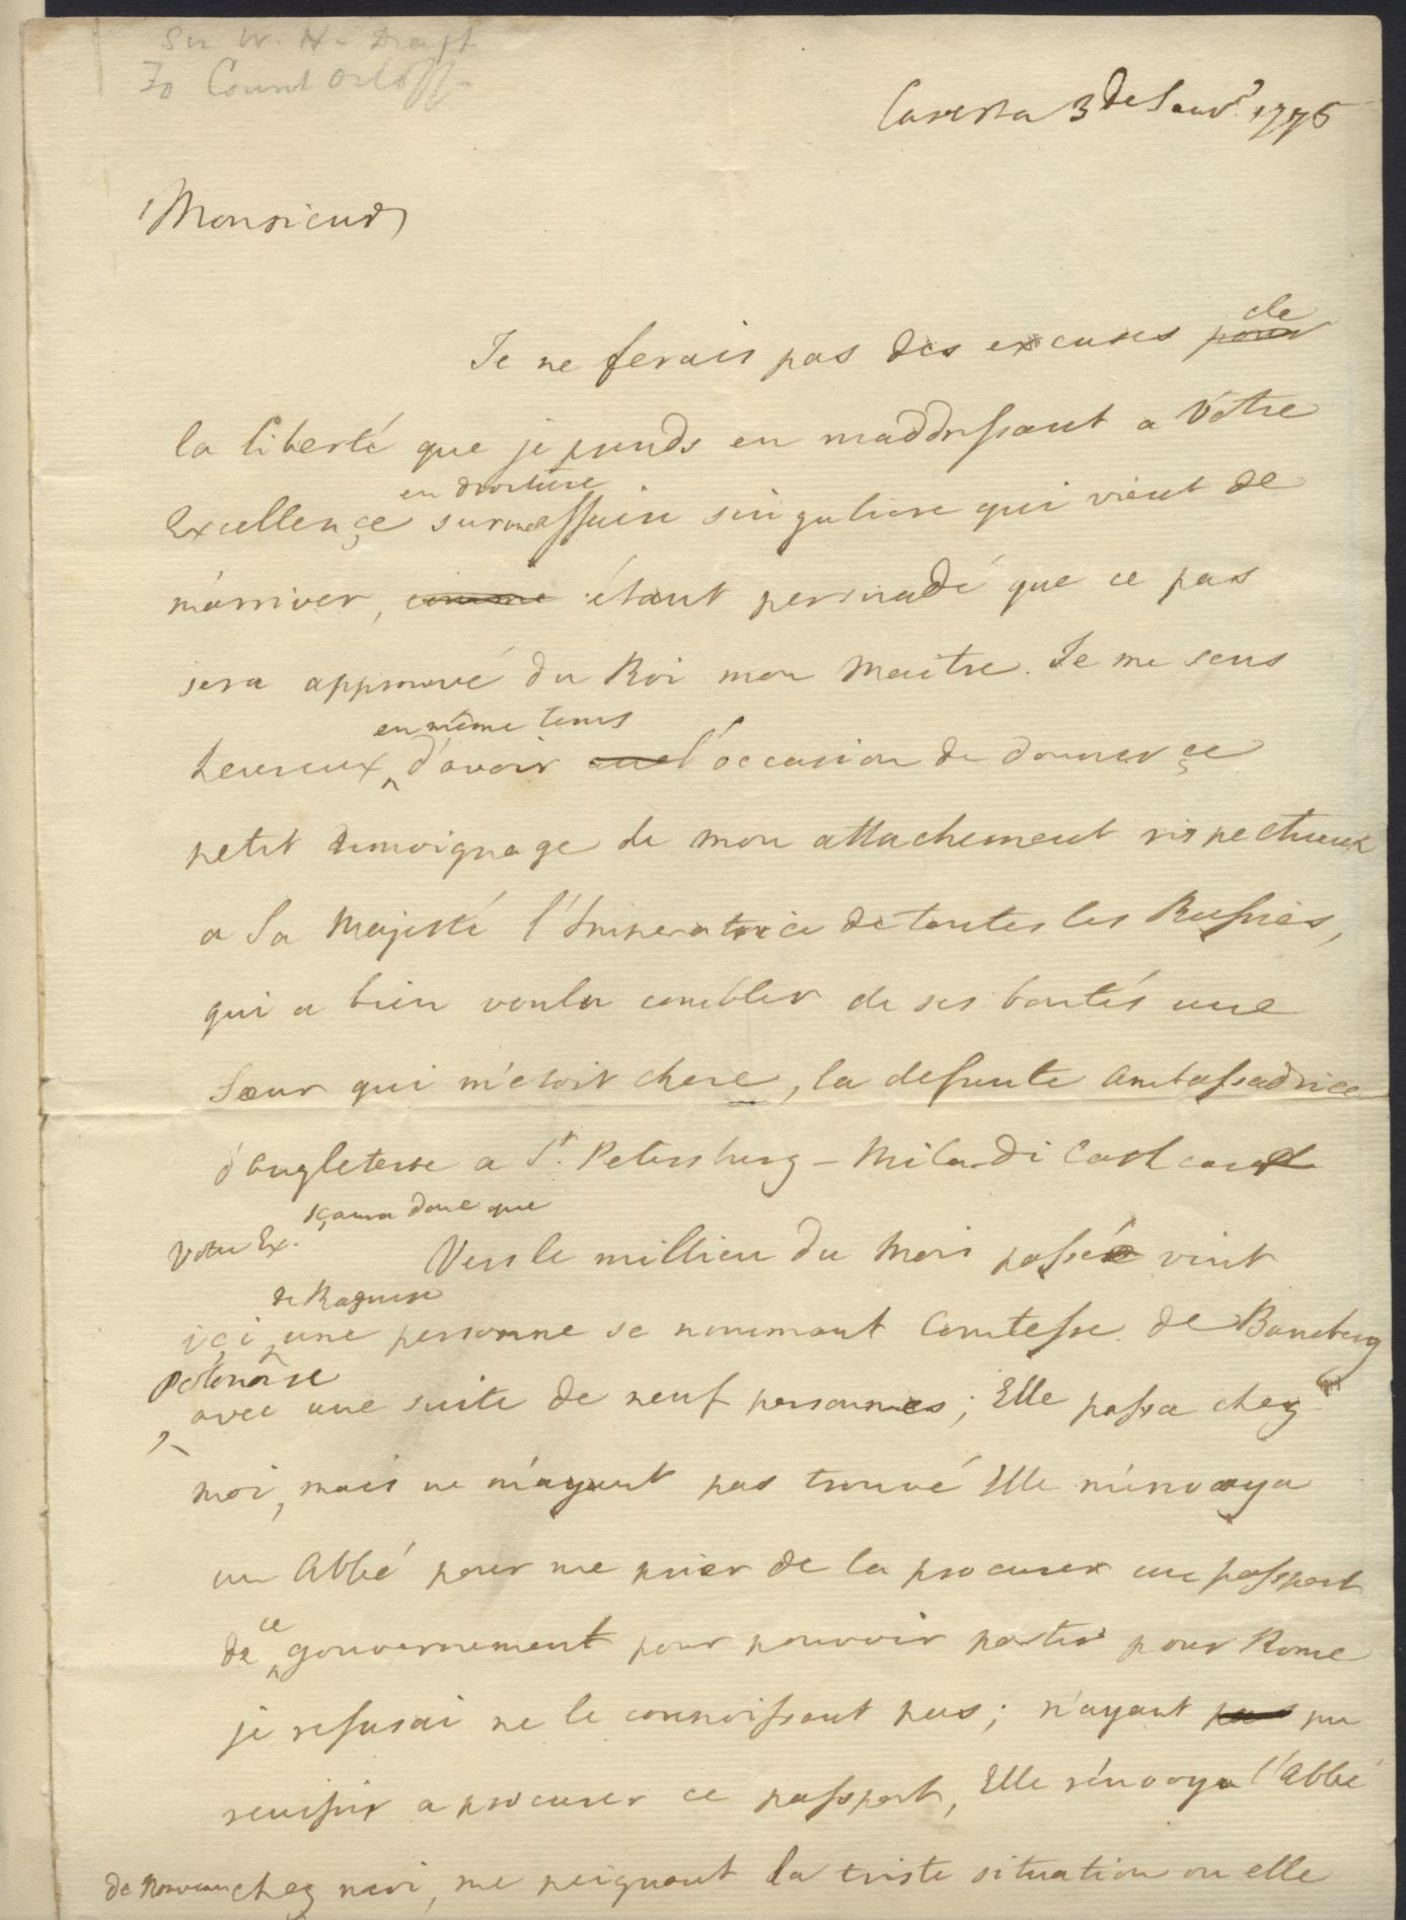 Sir W. H - Draft
To Count Orloff -
Caserta 3 de Janvr. 1775
Monsieur
de
Je ne ferais pas des excuses pour
la liberté que je prends en maddressant a Vôtre
en droiture
Excellençe sur une affaire singuliere qui vient de
m'arriver, comme étant persuadé que ce pas
sera approuvé du Roi mon Maitre. Je me sens
en même tems
heureux d'avoir une l'occasion de donner çe
petit temoignage de mon attachement respectueux
a Sa Majesté l'Imperatrice de toutes les Russies,
qui a bien voulu combler de ses bontés une
Sœur qui m'etoit chere, la defunte Ambassadrice
d'Angleterre a St. Petersburg - Miladi Cathcart
Votre Ex. sçaura donc que
Vers le millieu du Mois passé vint
de Raguse
içi une personne se nommant Comtesse de Bamberg
Polonoise
avec une suite de neuf personnes; Elle passa chez
moi, mais ne m'ayant pas trouvé Elle m'envoya
un Abbé pour me prier de la procurer un passport
ce
de gouvernement pour pouvoir partir pour Rome
je refusai ne le connoissant pas; n'ayant pas pu
reussir a procurer ce passport, Elle rénvoya l'Abbé
de nouveau chez moi, me peignant la triste situation ou elle